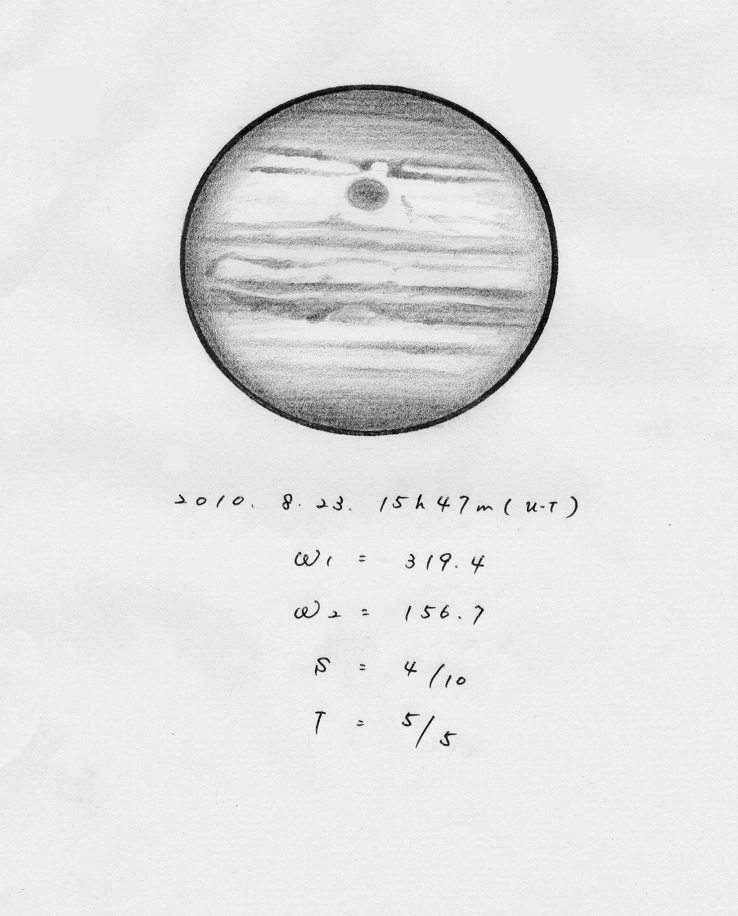 2010. 8. 23. 15h47m (U.T)
ω1 = 319.4
ω2 = 156.7
S = 4/10
T = 5/5